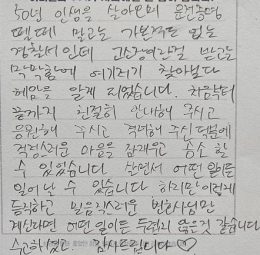 50년 인생을 살아오며 운전증명
뗄때 말고는 가본적도 없는
경찰서인데 고소장이란걸 받고는
막막함에 여기저기 찾아보다
혜암을 알게 되었습니다. 처음부터
끝까지 친절히 안내해 주시고
응원해 주시고 격려해 주신 덕분에
걱정스러운 마음을 잠재우고 승소 할
수 있었습니다. 살면서 어떤 일이든
일어날 수 있습니다 하지만 이렇게
든직하고 믿음직스러운 변호사님만
계신다면 어떤 일이든 두렵지 않은것 같습니다
수고하셨고 감사드립니다 ♡